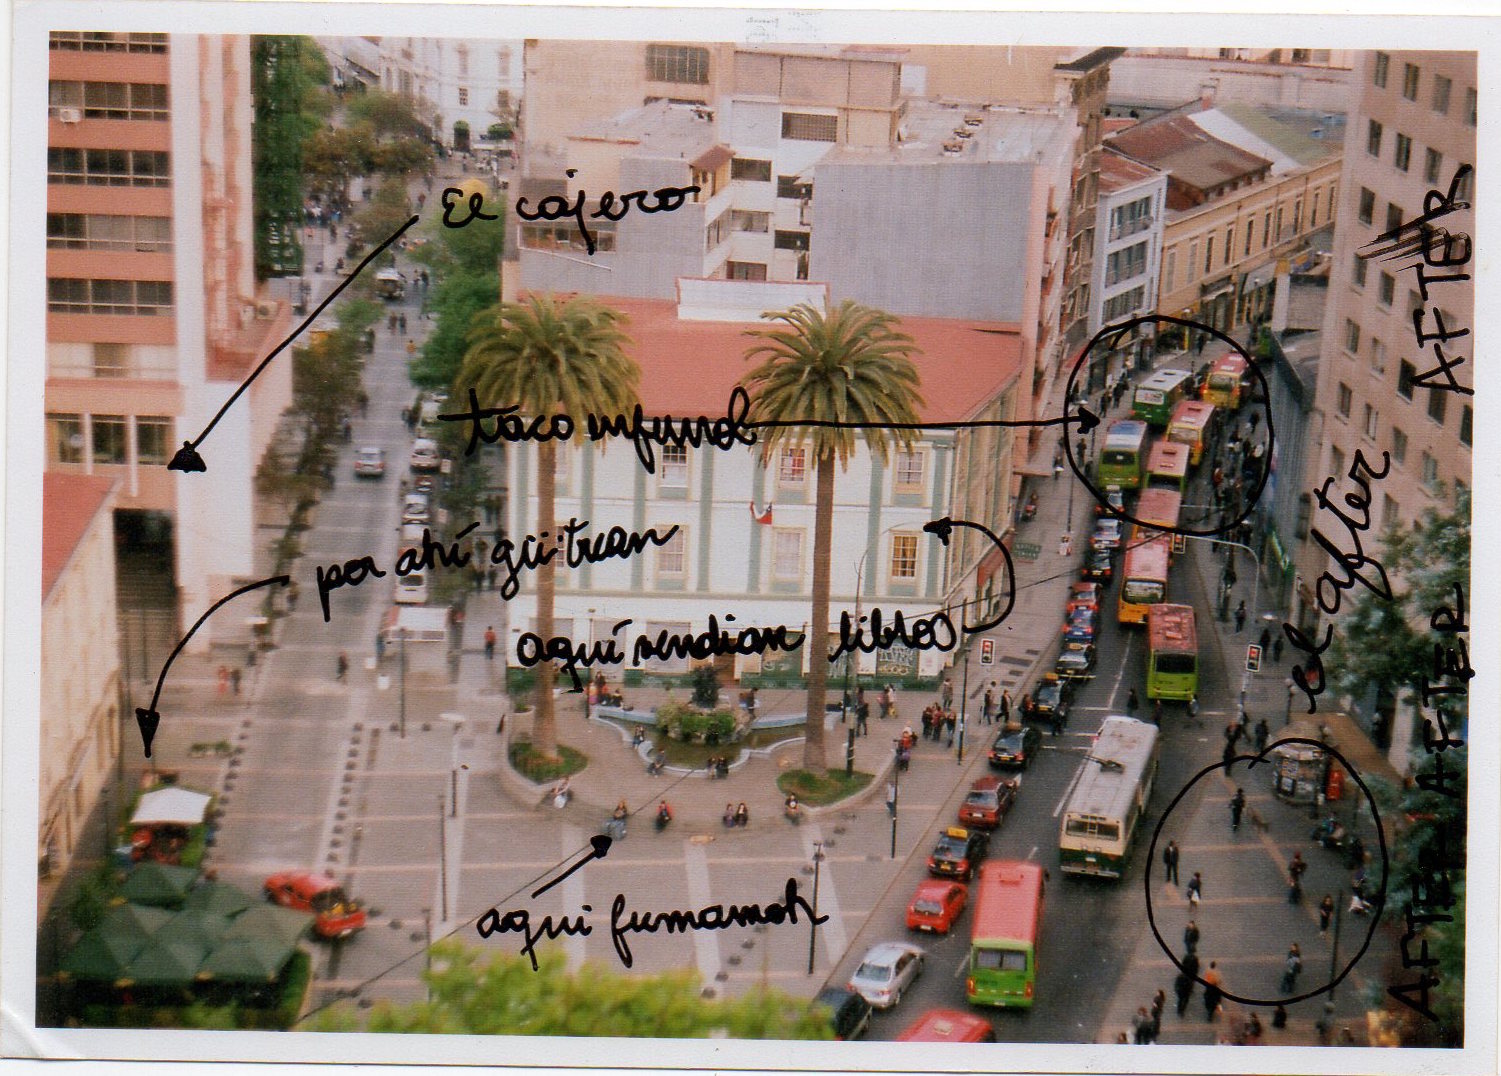 El cajero
taco infernal
por ahí güitrean
aquí vendian libros
aqui fumamoh
el after
AFTER
AFTER
AFTER